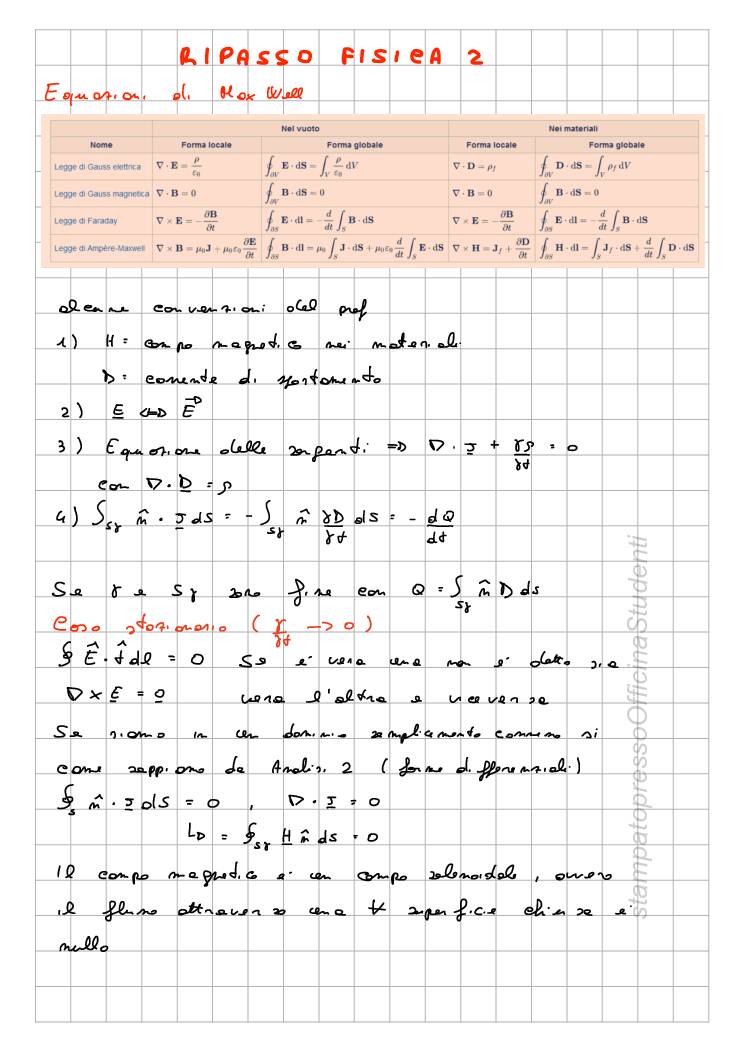 RIPASSO FISICA 2
Equazioni di MaxWell
Nel vuoto Nei materiali
Nome Forma locale Forma globale Forma locale Forma globale
Legge di Gauss elettrica ∇ · E = ρ/ε₀ ∮∂V E · dS = ∫V ρ/ε₀ dV ∇ · D = ρf ∮∂V D · dS = ∫V ρf dV
Legge di Gauss magnetica ∇ · B = 0 ∮∂V B · dS = 0 ∇ · B = 0 ∮∂V B · dS = 0
Legge di Faraday ∇ × E = −∂B/∂t ∮∂S E · dl = −d/dt ∫S B · dS ∇ × E = −∂B/∂t ∮∂S E · dl = −d/dt ∫S B · dS
Legge di Ampère-Maxwell ∇ × B = μ₀J + μ₀ε₀ ∂E/∂t ∮∂S B · dl = μ₀ ∫S J · dS + μ₀ε₀ d/dt ∫S E · dS ∇ × H = Jf + ∂D/∂t ∮∂S H · dl = ∫S Jf · dS + d/dt ∫S D · dS
alcune convenzioni del prof
1) H = campo magnetico nei materiali
D = corrente di spostamento
2) E ⇔ E⃗
3) Equazione delle sorgenti ⇒ ∇ · J + γρ/γt = 0
con ∇ · D = ρ
4) ∫Sγ n̂ · J dS = − ∫Sγ n̂ γD/γt dS = − dQ/dt
Se γ e Sγ sono fisse con Q = ∫Sγ n̂ D ds
Caso stazionario (γ/γt → 0)
∮ Ê · t̂ dl = 0 Se è vera una non è detto sia
∇ × E = 0 vera l'altra e viceversa
Se siamo in un dominio semplicemente connesso si
come sappiamo da Analisi 2 (forme differenziali)
∮S n̂ · J dS = 0 , ∇ · J = 0
L⇒ = ∮Sγ H n̂ ds = 0
Il campo magnetico è un campo solenoidale, ovvero
il flusso attraverso una ∀ superficie chiusa è
nullo
stampatopressoOfficinaStudenti